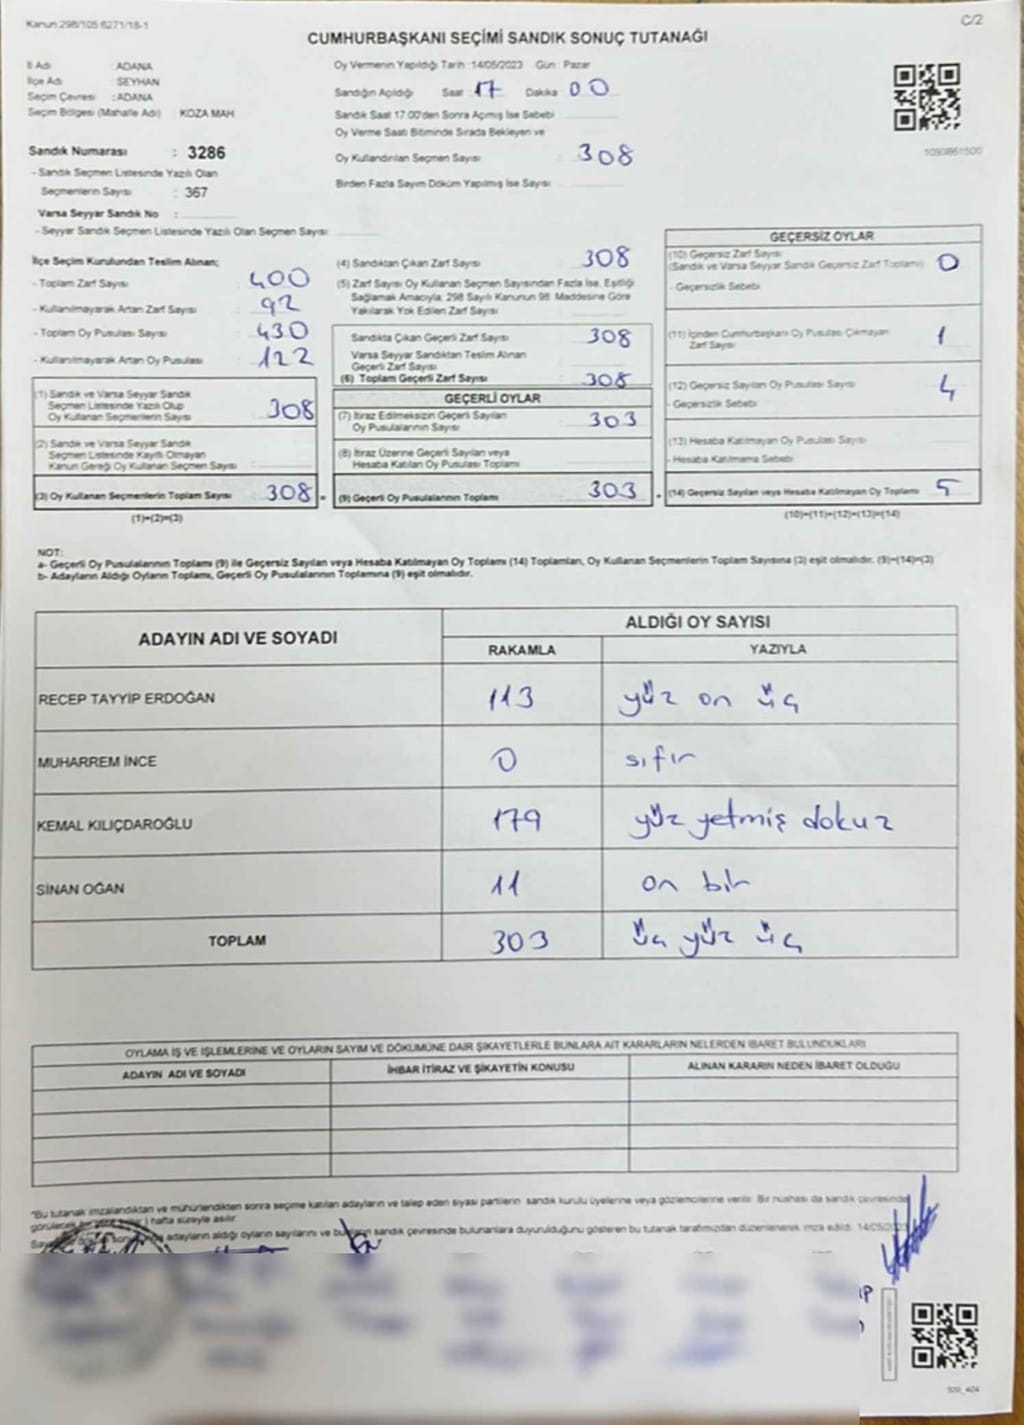 Kanun:298/105 6271/18-1
C/2
CUMHURBAŞKANI SEÇİMİ SANDIK SONUÇ TUTANAĞI
İl Adı : ADANA
İlçe Adı : SEYHAN
Seçim Çevresi : ADANA
Seçim Bölgesi (Mahalle Adı) : KOZA MAH
Sandık Numarası : 3286
- Sandık Seçmen Listesinde Yazılı Olan
Seçmenlerin Sayısı : 367
Varsa Seyyar Sandık No :
- Seyyar Sandık Seçmen Listesinde Yazılı Olan Seçmen Sayısı:
Oy Vermenin Yapıldığı Tarih :14/05/2023 Gün : Pazar
Sandığın Açıldığı Saat :17 Dakika 00
Sandık Saat 17:00'den Sonra Açmış İse Sebebi
Oy Verme Saati Bitiminde Sırada Bekleyen ve
Oy Kullandırılan Seçmen Sayısı 308
Birden Fazla Sayım Döküm Yapılmış İse Sayısı
1090861500
İlçe Seçim Kurulundan Teslim Alınan;
- Toplam Zarf Sayısı : 400
- Kullanılmayarak Artan Zarf Sayısı : 92
- Toplam Oy Pusulası Sayısı : 430
- Kullanılmayarak Artan Oy Pusulası : 122
(1) Sandık ve Varsa Seyyar Sandık
Seçmen Listesinde Yazılı Olup
Oy Kullanan Seçmenlerin Sayısı 308
(2) Sandık ve Varsa Seyyar Sandık
Seçmen Listesinde Kayıtlı Olmayan
Kanun Gereği Oy Kullanan Seçmen Sayısı
(3) Oy Kullanan Seçmenlerin Toplam Sayısı 308 =
(1)+(2)=(3)
(4) Sandıktan Çıkan Zarf Sayısı 308
(5) Zarf Sayısı Oy Kullanan Seçmen Sayısından Fazla İse, Eşitliği
Sağlamak Amacıyla; 298 Sayılı Kanunun 98. Maddesine Göre
Yakılarak Yok Edilen Zarf Sayısı
Sandıkta Çıkan Geçerli Zarf Sayısı 308
Varsa Seyyar Sandıktan Teslim Alınan
Geçerli Zarf Sayısı
(6) Toplam Geçerli Zarf Sayısı 308
GEÇERLİ OYLAR
(7) İtiraz Edilmeksizin Geçerli Sayılan
Oy Pusulalarının Sayısı 303
(8) İtiraz Üzerine Geçerli Sayılan veya
Hesaba Katılan Oy Pusulası Toplamı
(9) Geçerli Oy Pusulalarının Toplamı 303 +
GEÇERSİZ OYLAR
(10) Geçersiz Zarf Sayısı
(Sandık ve Varsa Seyyar Sandık Geçersiz Zarf Toplamı) 0
- Geçersizlik Sebebi
(11) İçinden Cumhurbaşkanı Oy Pusulası Çıkmayan
Zarf Sayısı 1
(12) Geçersiz Sayılan Oy Pusulası Sayısı 4
- Geçersizlik Sebebi
(13) Hesaba Katılmayan Oy Pusulası Sayısı
- Hesaba Katılmama Sebebi
(14) Geçersiz Sayılan veya Hesaba Katılmayan Oy Toplamı 5
(10)+(11)+(12)+(13)=(14)
NOT:
a- Geçerli Oy Pusulalarının Toplamı (9) ile Geçersiz Sayılan veya Hesaba Katılmayan Oy Toplamı (14) Toplamları, Oy Kullanan Seçmenlerin Toplam Sayısına (3) eşit olmalıdır. (9)+(14)=(3)
b- Adayların Aldığı Oyların Toplamı, Geçerli Oy Pusulalarının Toplamına (9) eşit olmalıdır.
ADAYIN ADI VE SOYADI
ALDIĞI OY SAYISI
RAKAMLA YAZIYLA
RECEP TAYYİP ERDOĞAN 113 yüz on üç
MUHARREM İNCE 0 sıfır
KEMAL KILIÇDAROĞLU 179 yüz yetmiş dokuz
SİNAN OĞAN 11 on bir
TOPLAM 303 üç yüz üç
OYLAMA İŞ VE İŞLEMLERİNE VE OYLARIN SAYIM VE DÖKÜMÜNE DAİR ŞİKAYETLERLE BUNLARA AİT KARARLARIN NELERDEN İBARET BULUNDUKLARI
ADAYIN ADI VE SOYADI İHBAR İTİRAZ VE ŞİKAYETİN KONUSU ALINAN KARARIN NEDEN İBARET OLDUĞU
"Bu tutanak imzalandıktan ve mühürlendikten sonra seçime katılan adayların ve talep eden siyasi partilerin sandık kurulu üyelerine veya gözlemcilerine verilir. Bir nüshası da sandık çevresinde
görülecek bir yere hafta süreyle asılır.
adayların aldığı oyların sayılarını ve sandık çevresinde bulunanlara duyurulduğunu gösteren bu tutanak tarafımızdan düzenlenerek imza edildi. 14/05/2023